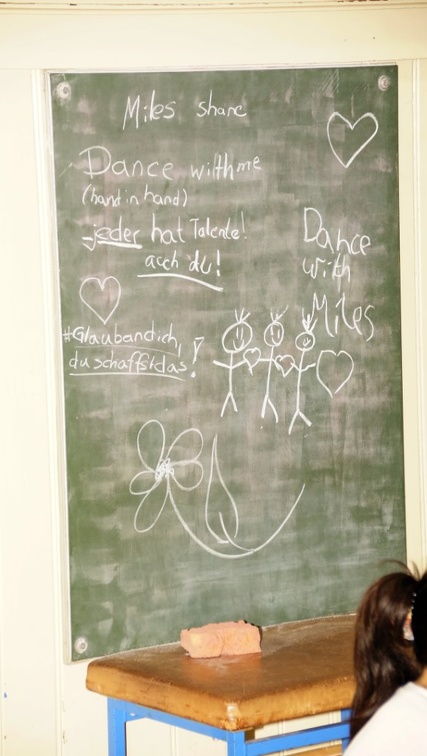 Miles share
Dance with me
(hand in hand)
jeder hat Talente!
auch du!
Dance
with
Miles
#Glaubandich,
du schaffstdas!